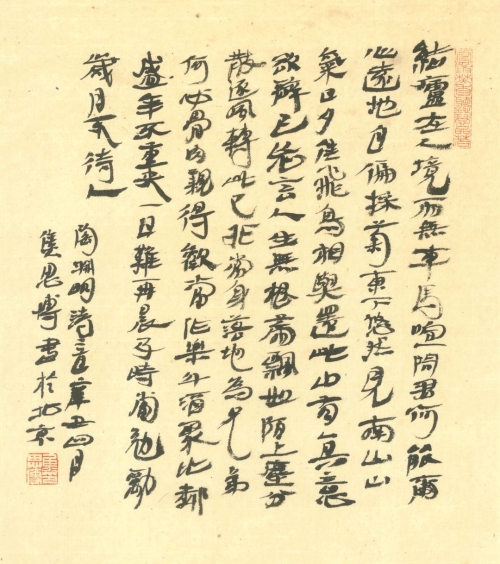 結廬在人境而無車馬喧問君何能爾
心遠地自偏採菊東下悠然見南山山
氣日夕佳飛鳥相與還此中有真意
欲辨已忘言人生無根蒂飄如陌上塵分
散逐風轉此已非常身落地為兄弟
何必骨肉親得歡當作樂斗酒聚比鄰
盛年不重來一日難再晨及時當勉勵
歲月不待人
陶淵明詩二章辛丑四月
思博書於北京